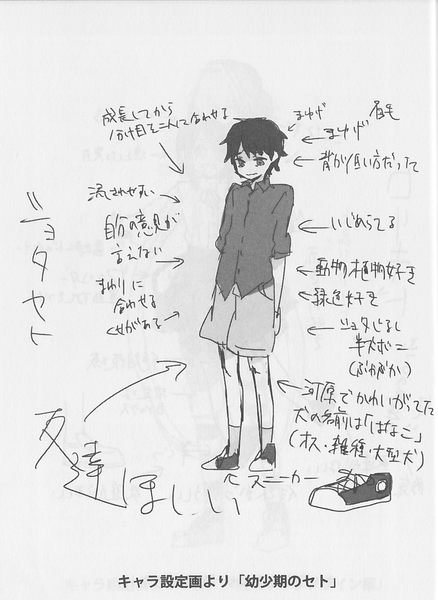 成長してから
分け目を二人であわせる
流されやすい
自分の意見が
言えない
まわりに
合わせる
くせがある
ショタセト
まゆげ
まゆげ
背が低い方だった
いじめられてる
動物植物好き
緑色好き
ショタじるし
半ズボン
(ぶかぶか)
河原でかわいがってた
犬の名前は「はなこ」
(オス・雑種・大型犬)
友達ほしい
スニーカー
キャラ設定画より「幼少期のセト」